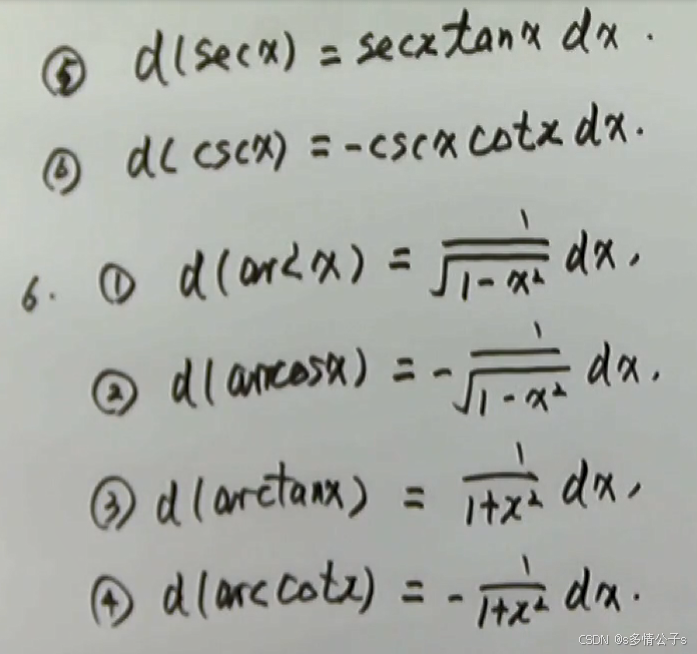 ⑤ d(secx) = secxtanx dx.
⑥ d(cscx) = -cscxcotx dx.
6. ① d(arc x) = 1/√(1-x²) dx,
② d(arccosx) = -1/√(1-x²) dx,
③ d(arctanx) = 1/(1+x²) dx,
④ d(arccotx) = -1/(1+x²) dx.
CSDN @s多情公子s